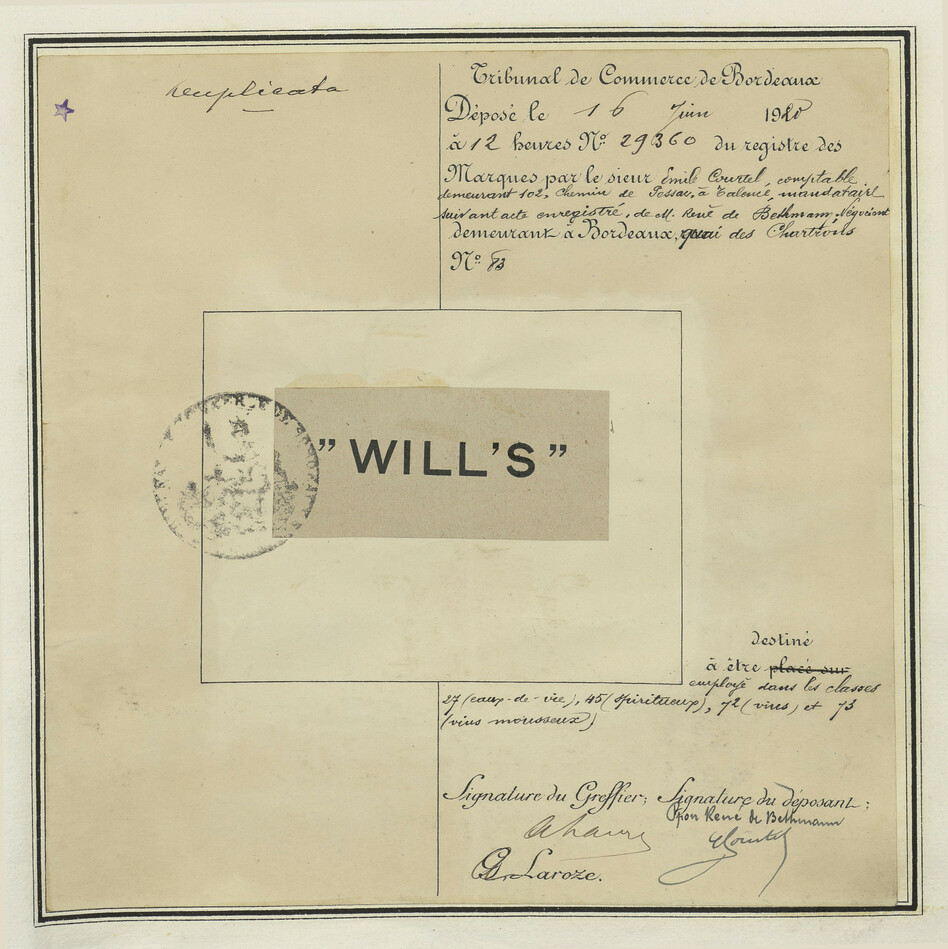 Tribunal de Commerce de Bordeaux
Déposé le 16 Juin 19
à 12 heures Nº 29360 du registre des
Marques par le sieur Emile Courtel, comptable
demeurant 102, Chemin de Pessac, à Talence, mandataire
suivant acte enregistré, de M. René de Bethmann Négociant
demeurant à Bordeaux, quai des Chartrons
Nº 83
" WILL'S "
destiné
à être placé sur
employé dans les classes
27 (eaux-de-vie), 45 (spiritueux), 72 (vins) et 73
(vins mousseux)
Signature du Greffier; Signature du déposant:
Ppon René de Bethmann
Courtel
G. Laroze.